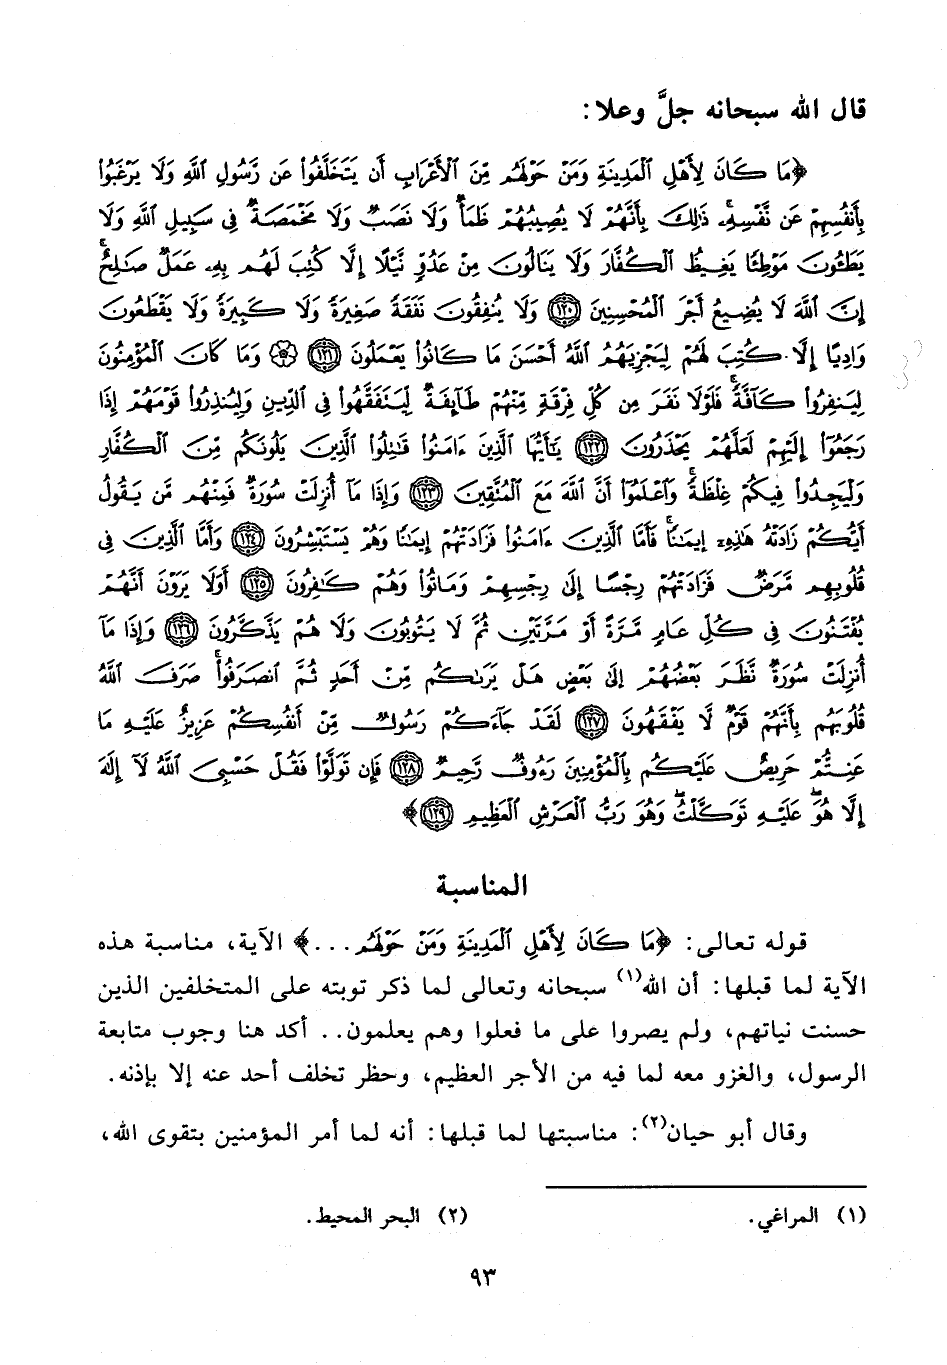 قال الله سبحانه جلَّ وعلا:
﴿مَا كَانَ لِأَهْلِ الْمَدِينَةِ وَمَنْ حَوْلَهُم مِّنَ الْأَعْرَابِ أَن يَتَخَلَّفُوا۟ عَن رَّسُولِ اللَّهِ وَلَا يَرْغَبُوا۟
بِأَنفُسِهِمْ عَن نَّفْسِهِۦ ۚ ذَٰلِكَ بِأَنَّهُمْ لَا يُصِيبُهُمْ ظَمَأٌ وَلَا نَصَبٌ وَلَا مَخْمَصَةٌ فِى سَبِيلِ اللَّهِ وَلَا
يَطَـُٔونَ مَوْطِئًا يَغِيظُ الْكُفَّارَ وَلَا يَنَالُونَ مِنْ عَدُوٍّ نَّيْلًا إِلَّا كُتِبَ لَهُم بِهِۦ عَمَلٌ صَٰلِحٌ ۚ
إِنَّ اللَّهَ لَا يُضِيعُ أَجْرَ الْمُحْسِنِينَ ﴿١٢٠﴾ وَلَا يُنفِقُونَ نَفَقَةً صَغِيرَةً وَلَا كَبِيرَةً وَلَا يَقْطَعُونَ
وَادِيًا إِلَّا كُتِبَ لَهُمْ لِيَجْزِيَهُمُ اللَّهُ أَحْسَنَ مَا كَانُوا۟ يَعْمَلُونَ ﴿١٢١﴾ ۞ وَمَا كَانَ الْمُؤْمِنُونَ
لِيَنفِرُوا۟ كَآفَّةً ۚ فَلَوْلَا نَفَرَ مِن كُلِّ فِرْقَةٍ مِّنْهُمْ طَآئِفَةٌ لِّيَتَفَقَّهُوا۟ فِى الدِّينِ وَلِيُنذِرُوا۟ قَوْمَهُمْ إِذَا
رَجَعُوٓا۟ إِلَيْهِمْ لَعَلَّهُمْ يَحْذَرُونَ ﴿١٢٢﴾ يَٰٓأَيُّهَا الَّذِينَ ءَامَنُوا۟ قَٰتِلُوا۟ الَّذِينَ يَلُونَكُم مِّنَ الْكُفَّارِ
وَلْيَجِدُوا۟ فِيكُمْ غِلْظَةً ۚ وَاعْلَمُوٓا۟ أَنَّ اللَّهَ مَعَ الْمُتَّقِينَ ﴿١٢٣﴾ وَإِذَا مَآ أُنزِلَتْ سُورَةٌ فَمِنْهُم مَّن يَقُولُ
أَيُّكُمْ زَادَتْهُ هَٰذِهِۦٓ إِيمَٰنًا ۚ فَأَمَّا الَّذِينَ ءَامَنُوا۟ فَزَادَتْهُمْ إِيمَٰنًا وَهُمْ يَسْتَبْشِرُونَ ﴿١٢٤﴾ وَأَمَّا الَّذِينَ فِى
قُلُوبِهِم مَّرَضٌ فَزَادَتْهُمْ رِجْسًا إِلَىٰ رِجْسِهِمْ وَمَاتُوا۟ وَهُمْ كَٰفِرُونَ ﴿١٢٥﴾ أَوَلَا يَرَوْنَ أَنَّهُمْ
يُفْتَنُونَ فِى كُلِّ عَامٍ مَّرَّةً أَوْ مَرَّتَيْنِ ثُمَّ لَا يَتُوبُونَ وَلَا هُمْ يَذَّكَّرُونَ ﴿١٢٦﴾ وَإِذَا مَآ
أُنزِلَتْ سُورَةٌ نَّظَرَ بَعْضُهُمْ إِلَىٰ بَعْضٍ هَلْ يَرَىٰكُم مِّنْ أَحَدٍ ثُمَّ انصَرَفُوا۟ ۚ صَرَفَ اللَّهُ
قُلُوبَهُم بِأَنَّهُمْ قَوْمٌ لَّا يَفْقَهُونَ ﴿١٢٧﴾ لَقَدْ جَآءَكُمْ رَسُولٌ مِّنْ أَنفُسِكُمْ عَزِيزٌ عَلَيْهِ مَا
عَنِتُّمْ حَرِيصٌ عَلَيْكُم بِالْمُؤْمِنِينَ رَءُوفٌ رَّحِيمٌ ﴿١٢٨﴾ فَإِن تَوَلَّوْا۟ فَقُلْ حَسْبِىَ اللَّهُ لَآ إِلَٰهَ
إِلَّا هُوَ ۖ عَلَيْهِ تَوَكَّلْتُ ۖ وَهُوَ رَبُّ الْعَرْشِ الْعَظِيمِ ﴿١٢٩﴾﴾
المناسبة
قوله تعالى: ﴿مَا كَانَ لِأَهْلِ الْمَدِينَةِ وَمَنْ حَوْلَهُم...﴾ الآية، مناسبة هذه
الآية لما قبلها: أن الله(١) سبحانه وتعالى لما ذكر توبته على المتخلفين الذين
حسنت نياتهم، ولم يصروا على ما فعلوا وهم يعلمون.. أكد هنا وجوب متابعة
الرسول، والغزو معه لما فيه من الأجر العظيم، وحظر تخلف أحد عنه إلا بإذنه.
وقال أبو حيان(٢): مناسبتها لما قبلها: أنه لما أمر المؤمنين بتقوى الله،
(١) المراغي. (٢) البحر المحيط.
٩٣